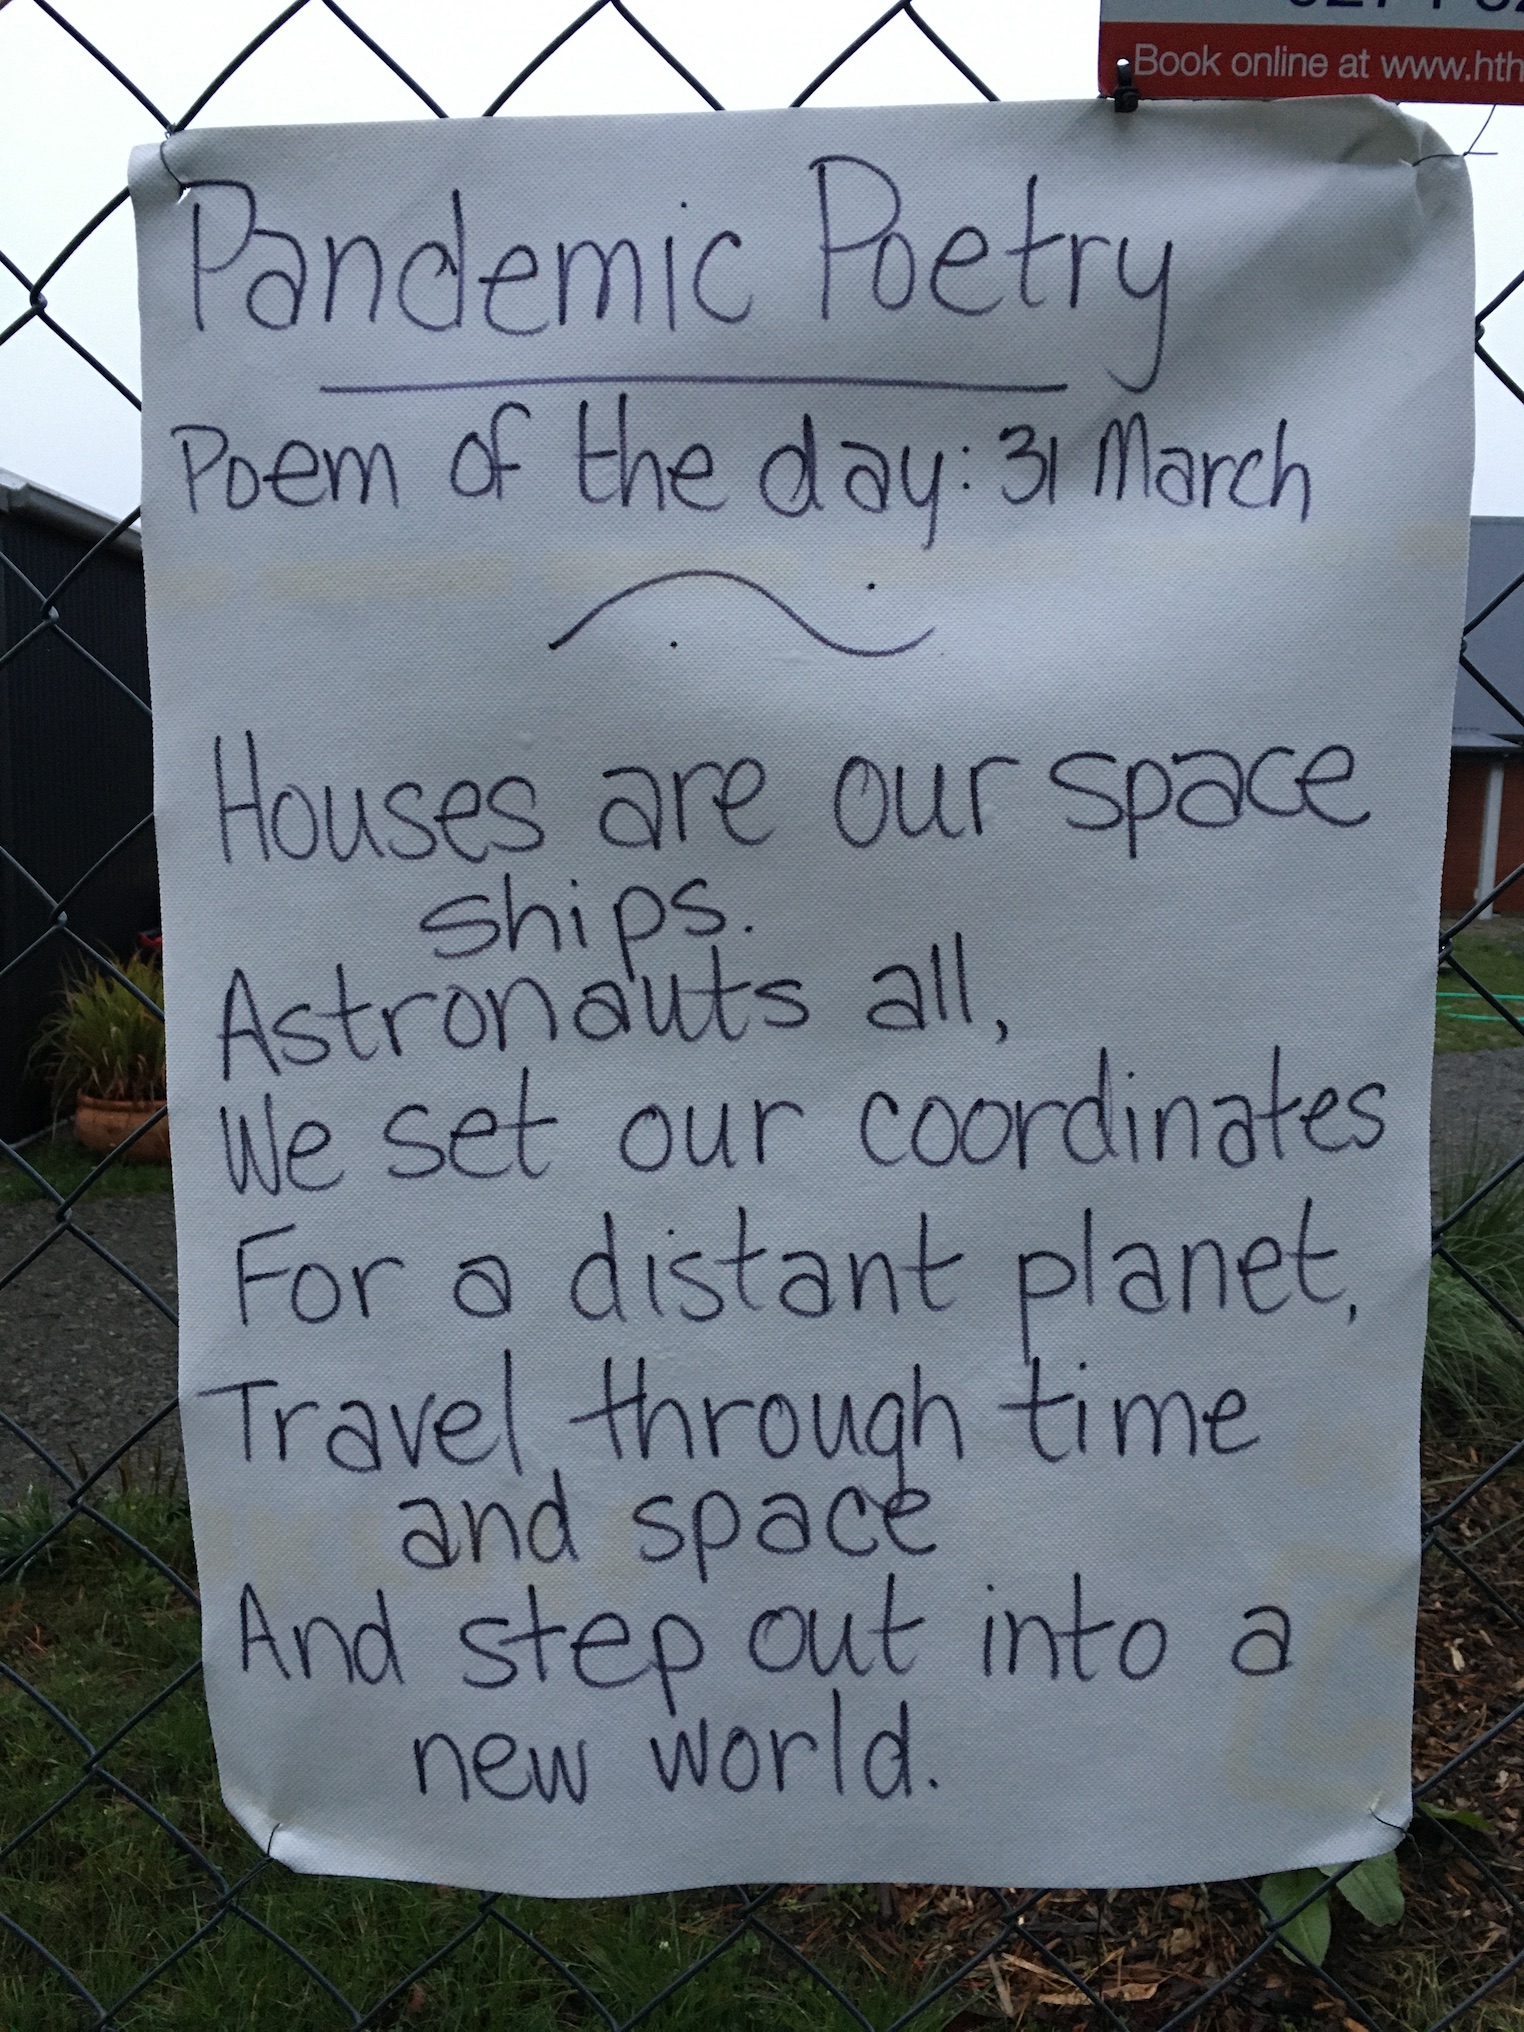 Book online at
Pandemic Poetry
Poem of the day: 31 March
Houses are our space
ships.
Astronauts all,
We set our coordinates
For a distant planet,
Travel through time
and space
And step out into a
new world.